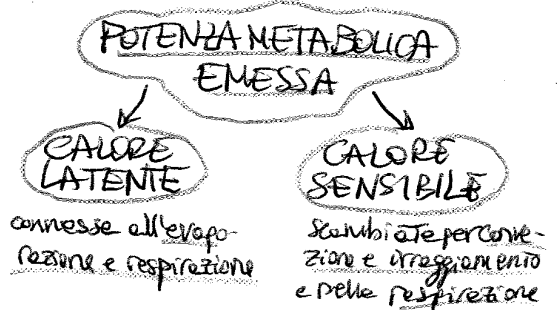 POTENZA METABOLICA
EMESSA
CALORE
LATENTE
connesse all'evapo-
razione e respirazione
CALORE
SENSIBILE
scambiate per conve-
zione e irraggiamento
e nella respirazione